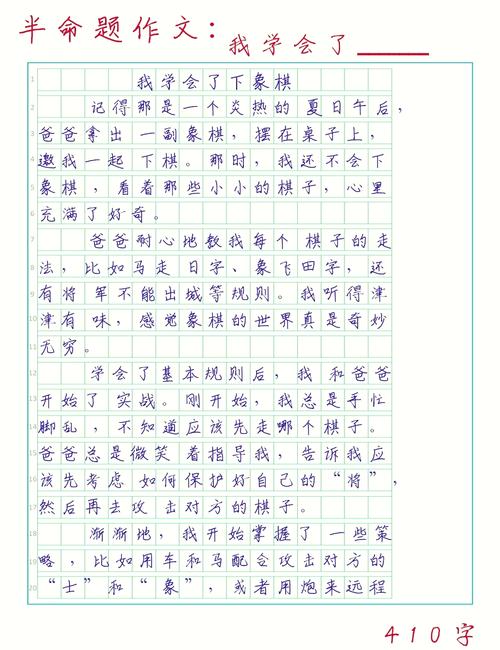 半命题作文：我学会了______
1 我学会了下象棋
2 记得那是一个炎热的夏日午后，
3 爸爸拿出一副象棋，摆在桌子上，
4 邀我一起下棋。那时，我还不会下
5 象棋，看着那些小小的棋子，心里
6 充满了好奇。
7 爸爸耐心地教我每个棋子的走
8 法，比如马走日字、象飞田字，还
9 有将军不能出城等规则。我听得津
10 津有味，感觉象棋的世界真是奇妙
11 无穷。
12 学会了基本规则后，我和爸爸
13 开始了实战。刚开始，我总是手忙
14 脚乱，不知道应该先走哪个棋子。
15 爸爸总是微笑着指导我，告诉我应
16 该先考虑如何保护好自己的“将”，
17 然后再去攻击对方的棋子。
18 渐渐地，我开始掌握了一些策
19 略，比如用车和马配合攻击对方的
20 “士”和“象”，或者用炮来远程
410字